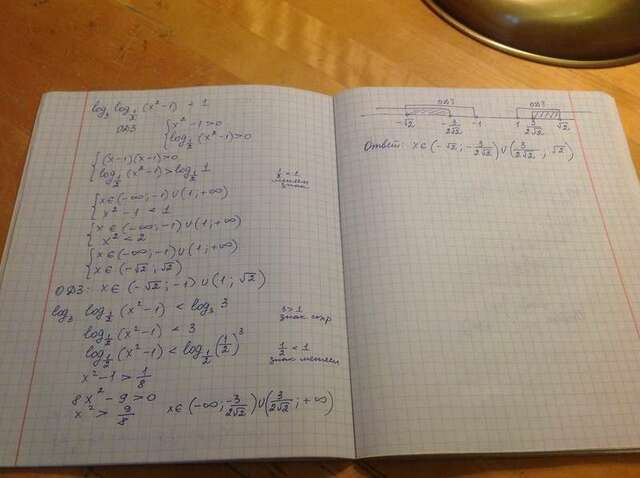 log₃ log_{1/2} (x²-1) < 1
ОДЗ { x²-1>0
log_{1/2} (x²-1)>0
{ (x-1)(x-1)>0
log_{1/2} (x²-1) > log_{1/2} 1
1/2 < 1
меняем
знак
{ x∈(-∞; -1)∪(1; +∞)
x²-1 < 1
{ x∈(-∞; -1)∪(1; +∞)
x² < 2
{ x∈(-∞; -1)∪(1; +∞)
x∈(-√2; √2)
ОДЗ: x∈(-√2; -1)∪(1; √2)
log₃ log_{1/2} (x²-1) < log₃ 3
3>1
знак сохр
log_{1/2} (x²-1) < 3
log_{1/2} (x²-1) < log_{1/2} (1/2)³
1/2 < 1
знак меняем
x²-1 > 1/8
8x²-9>0
x² > 9/8 x∈(-∞; -3/2√2)∪(3/2√2; +∞)
ОДЗ ОДЗ
-√2 -3/2√2 -1 1 3/2√2 √2
Ответ: x∈(-√2; -3/2√2)∪(3/2√2; √2)